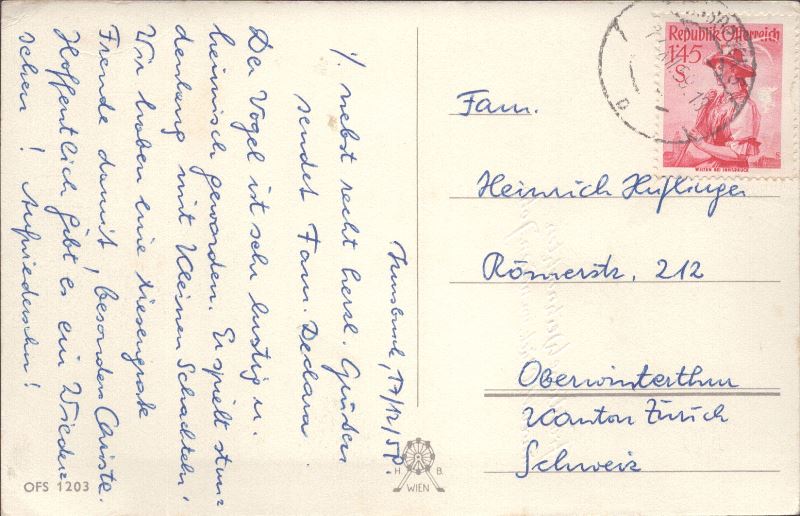 Innsbruck, 17/12/50.
1/. nebst recht herzl. Grüßen
sendet Fam. Dechara
Der Vogel ist sehr lustig u.
heimisch geworden. Er spielt stun=
denlang mit kleinen Schachteln!
Wir haben eine riesengroße
Freude damit, besonders Christe.
Hoffentlich gibt es ein Wieder=
sehen! Aufwiedersehn!
Fam.
Heinrich Huflinger
Römerstr. 212
Oberwinterthur
Kanton Zürich
Schweiz
Republik Österreich
1.45
S
WILTEN BEI INNSBRUCK
H. B.
WIEN
OFS 1203